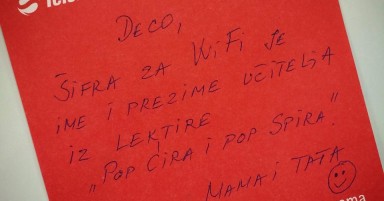 DECO,
ŠIFRA ZA WiFi JE
IME I PREZIME UČITELJA
IZ LEKTIRE
„POP ĆIRA I POP SPIRA."
MAMA I TATA